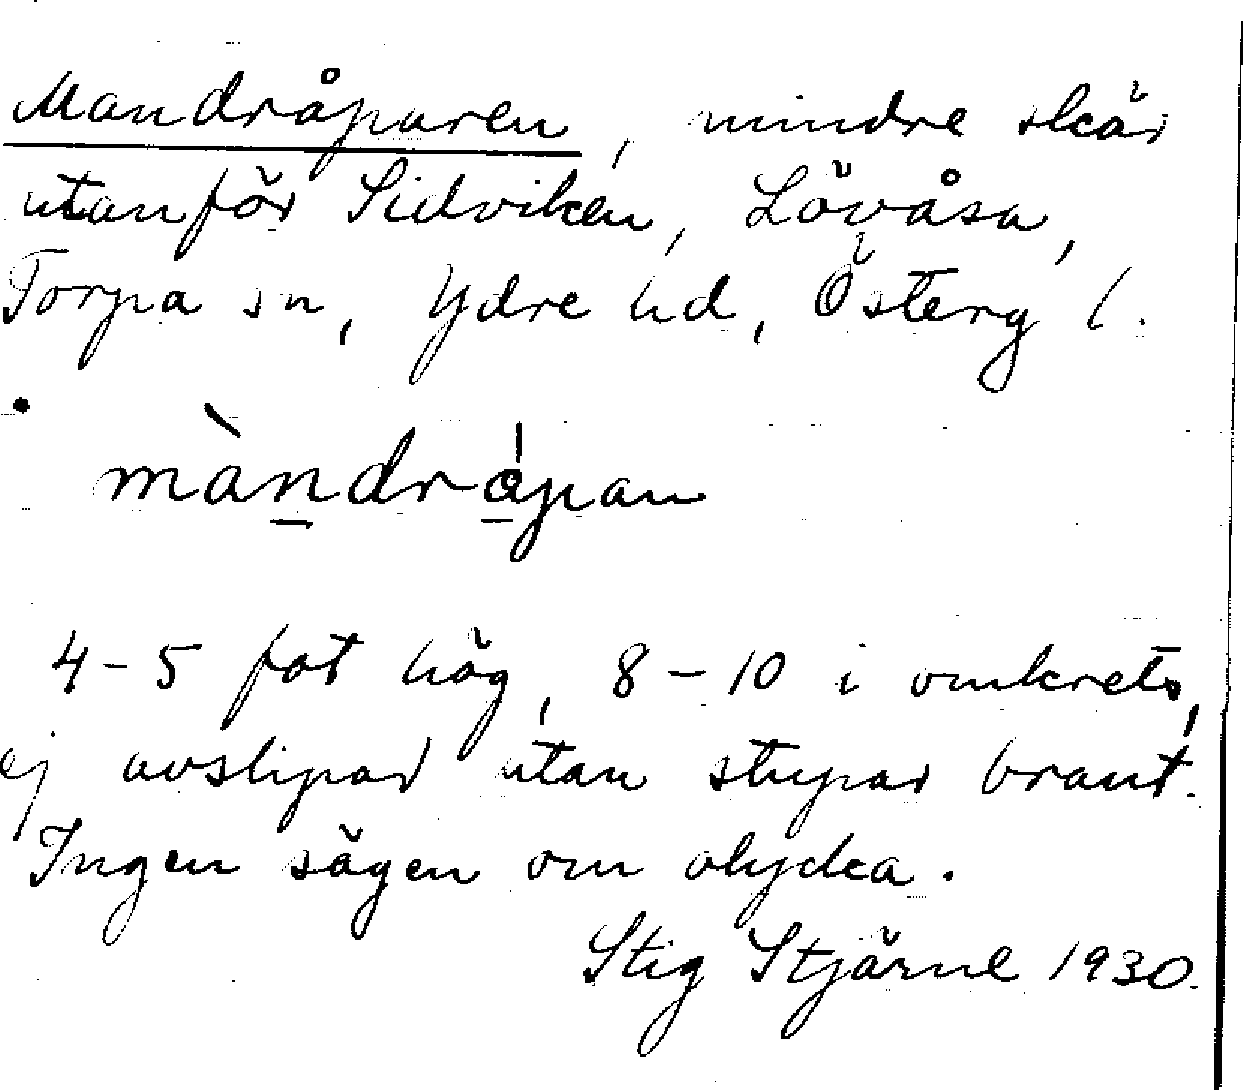 Mandråparen, mindre skär
utanför Sidviken, Lövåsa,
Torpa sn, Ydre hd, Österg l.
màndrå̱pan
4-5 fot hög, 8-10 i omkrets,
ej avslipad utan stupar brant.
Ingen sägen om olycka.
Stig Stjärne 1930.